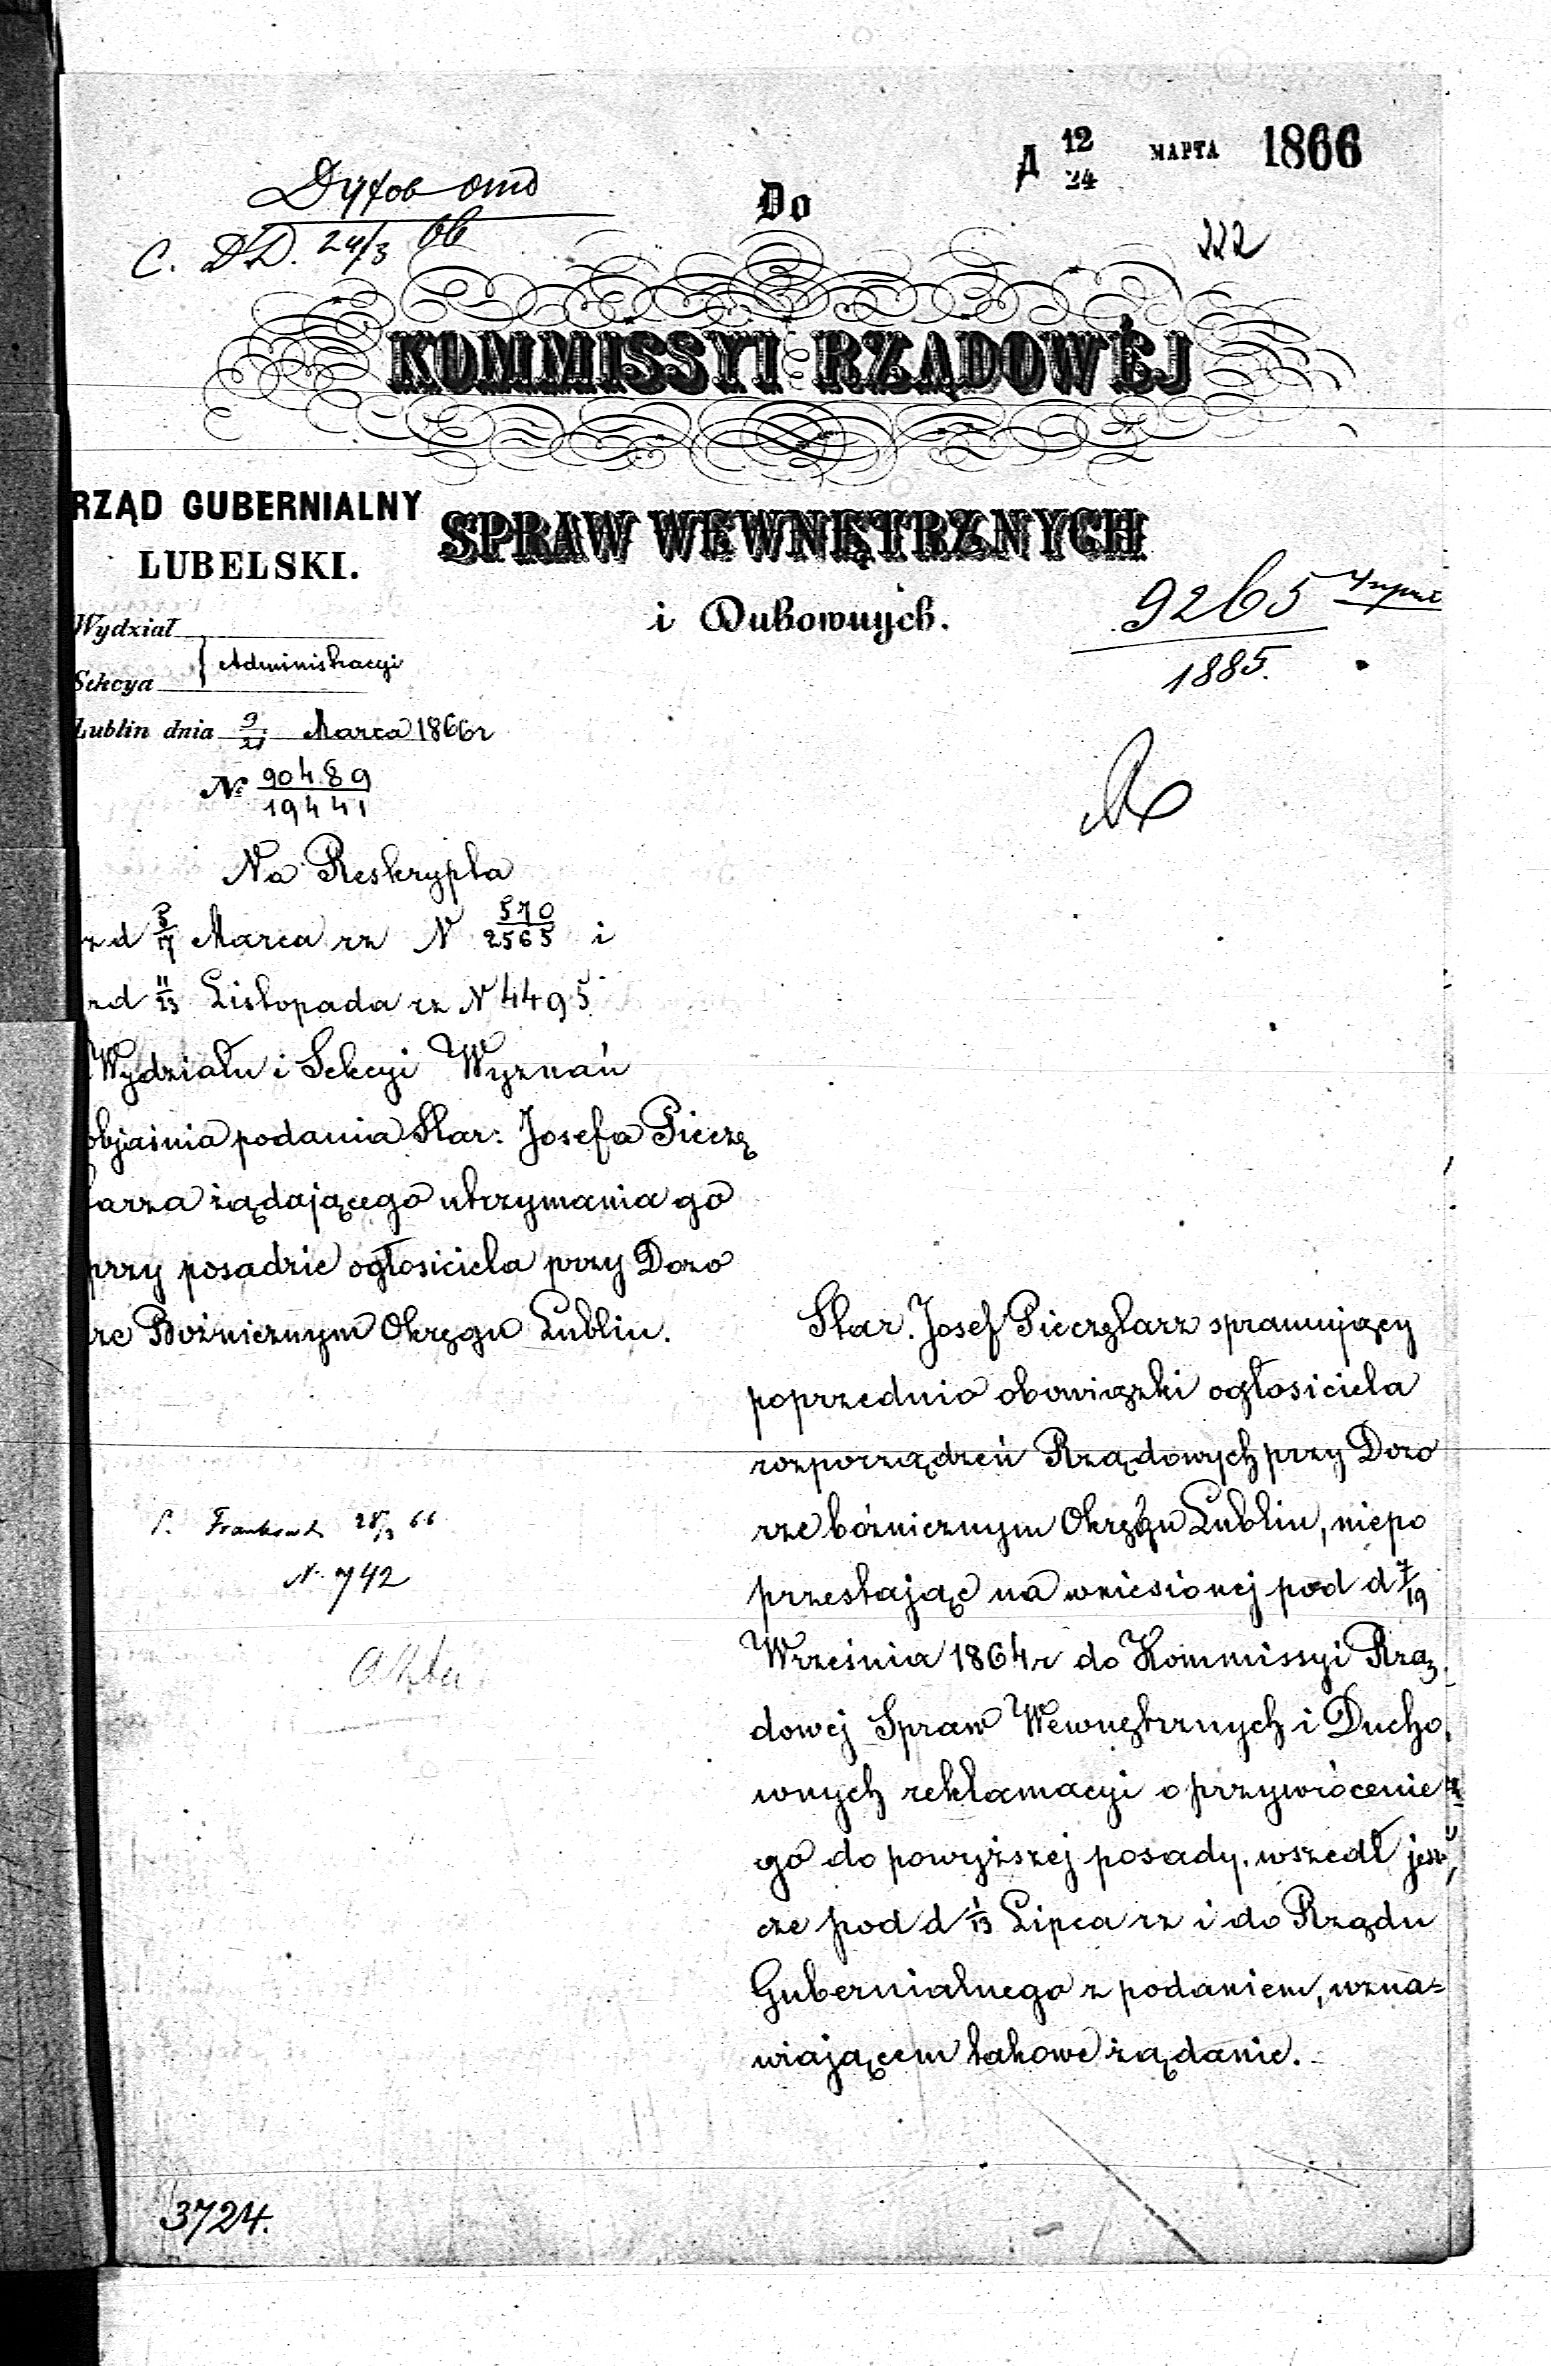 Д 12/24 МАРТА 1866
Do
222
C. DD. 24/3 66
KOMMISSYI RZĄDOWÉJ
RZĄD GUBERNIALNY
LUBELSKI.
SPRAW WEWNĘTRZNYCH
i Duhownych.
9265
1885.
Wydział
Administracyi
Sekcya
Lublin dnia 9/21 Marca 1866 r
№ 90489/19441
Na Reskrypta
z d 5/17 Marca rz N 570/2565 i
z d 11/23 Listopada rz N 4495
Wydziału i Sekcyi Wyznań
objaśnia podania Star: Josefa Pieczę
tarza żądającego utrzymania go
przy posadzie ogłosiciela przy Dozo
rze Bożnicznym Okręgu Lublin.
28/3 66
N. 742
Star. Josef Pieczętarz sprawujący
poprzednio obowiązki ogłosiciela
rozporządzeń Rządowych przy Dozo
rze bóżnicznym Okręgu Lublin, niepo
przestając na wniesionej pod d 7/19
Września 1864 r do Kommissyi Rzą
dowej Spraw Wewnętrznych i Ducho,
wnych reklamacyi o przywrócenie
go do powyższej posady, wszedł jesz,
cze pod d 1/13 Lipca rz i do Rządu
Gubernialnego z podaniem, wzna=
wiającem takowe żądanie.
3724.